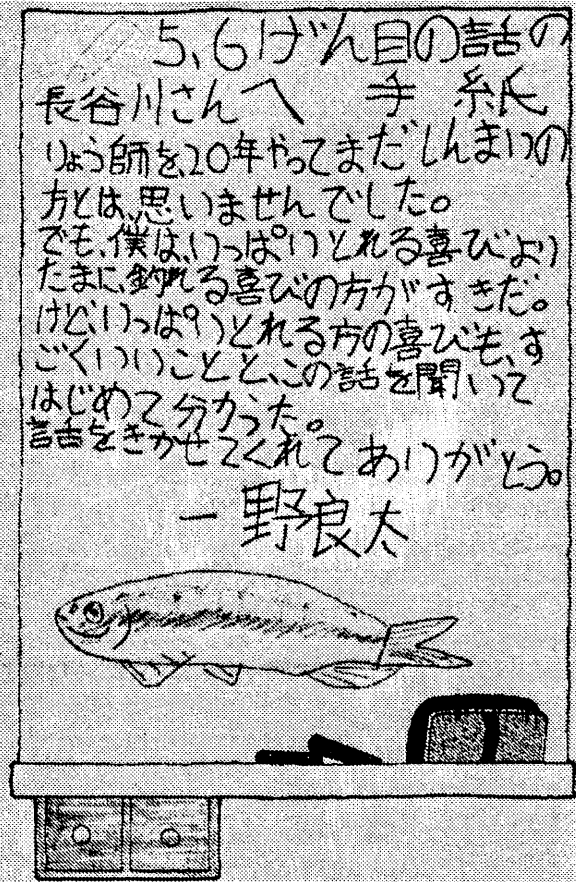 5,6げん目の話の
長谷川さんへ 手紙
りょう師を20年やってまだしんまいの
方とは、思いませんでした。
でも、僕は、いっぱいとれる喜びより
たまに、釣れる喜びの方がすきだ。
けど、いっぱいとれる方の喜びも、す
ごくいいことと、この話を聞いて
はじめて分かった。
話をきかせてくれてありがとう。
一野良太